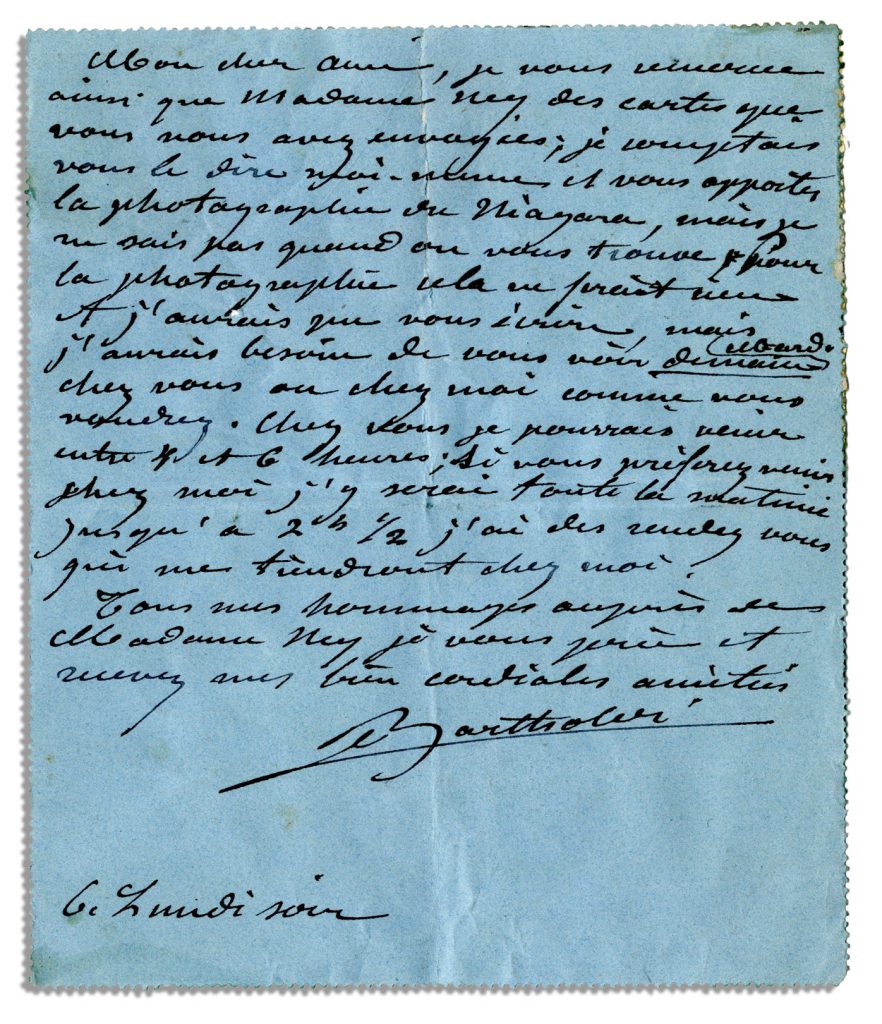 Mon cher ami, je vous remercie
ainsi que Madame Ney des cartes que
vous nous avez envoyées; je comptais
vous le dire moi-même et vous apporter
la photographie du Niagara, mais je
ne sais pas quand on vous trouve. Pour
la photographie cela ne serait rien
et j'aurais pu vous écrire, mais
Mardi
j'aurais besoin de vous voir demain
chez vous ou chez moi comme vous
voudrez. Chez vous je pourrais venir
entre 4 et 6 heures; si vous préferez venir
chez moi j'y serai toute la matinée
jusqu'a 2h 1/2 j'ai des rendez vous
qui me tiendront chez moi.
Tous mes hommages auprès de
Madame Ney je vous prie et
recevez mes bien cordiales amitiés
Bartholdi
Lundi soir